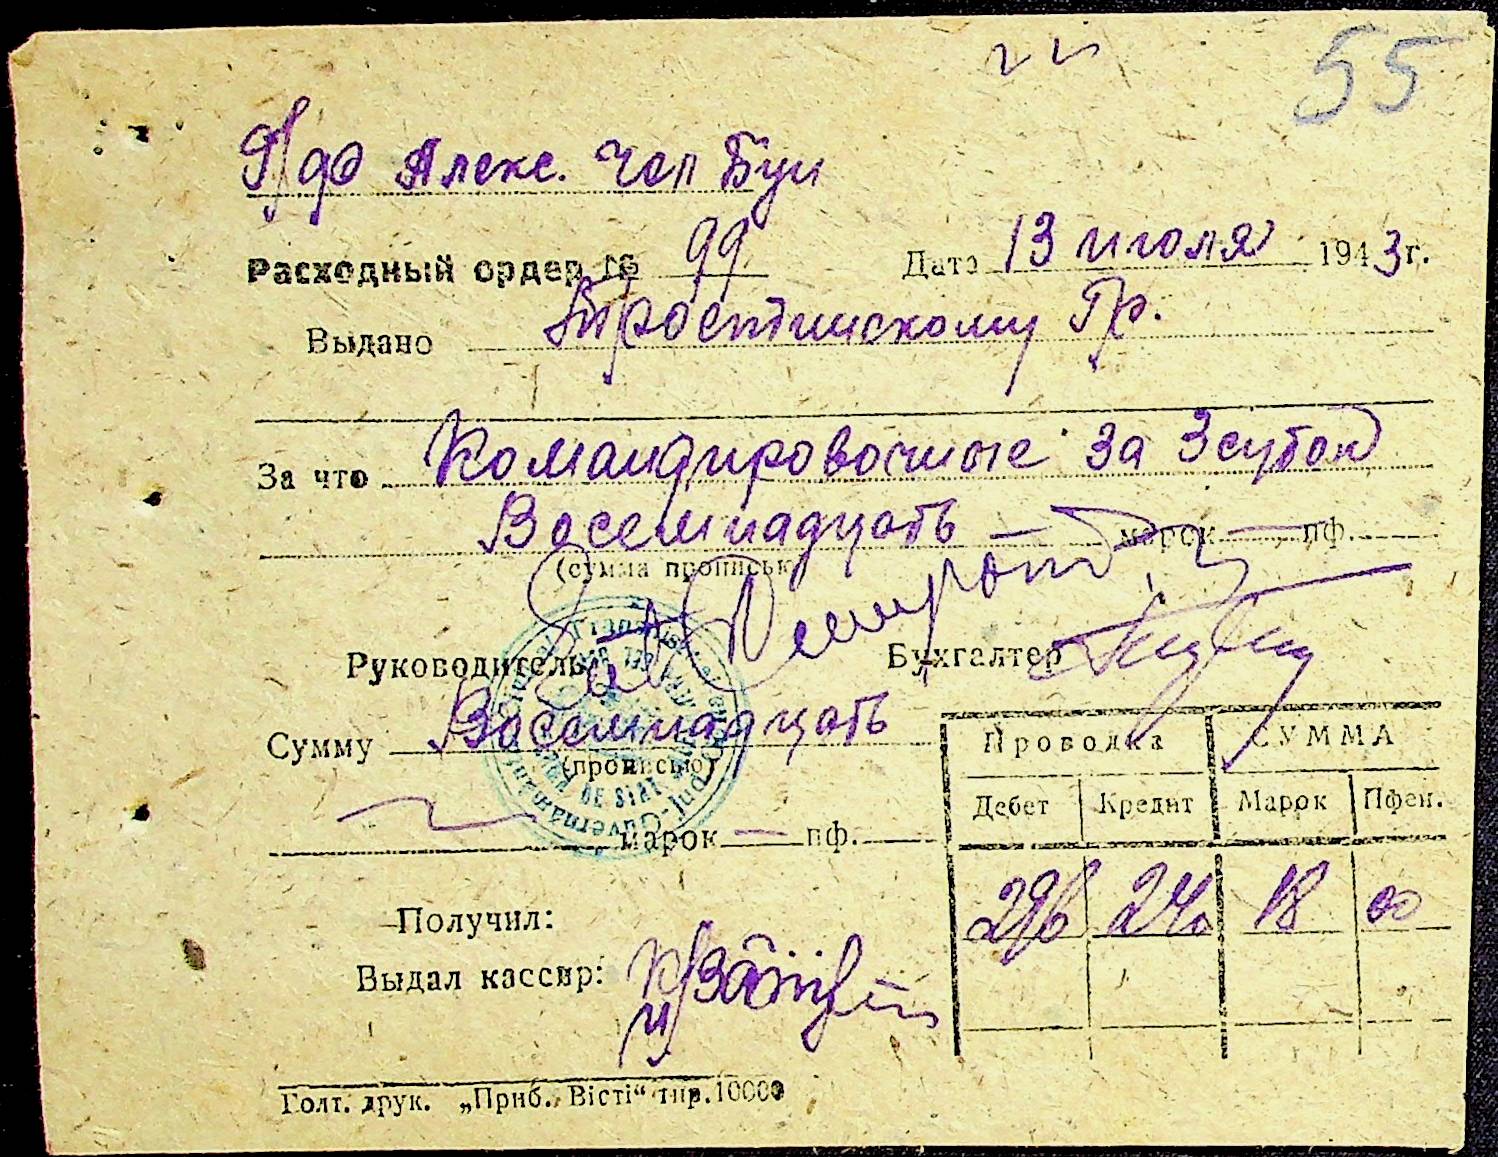 55
Алекс. Чоп Буи
Расходный ордер № 99 Дата 13 июля 1943 г.
Выдано Тростинскому Гр.
За что Командировочные за 3 суток
Восемнадцать — марок — пф.
(сумма прописью)
Руководитель Бухгалтер
Сумму Восемнадцать
(прописью)
марок — пф.
Проводка СУММА
Дебет Кредит Марок Пфен.
296 240 18 00
Получил:
Выдал кассир:
Голт. друк. „Приб. Вісті“ тир. 10000